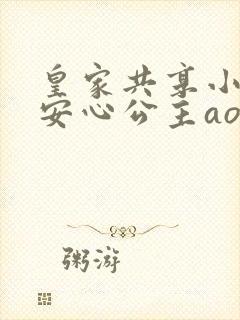 皇家共享小
安心公主ao
粥游